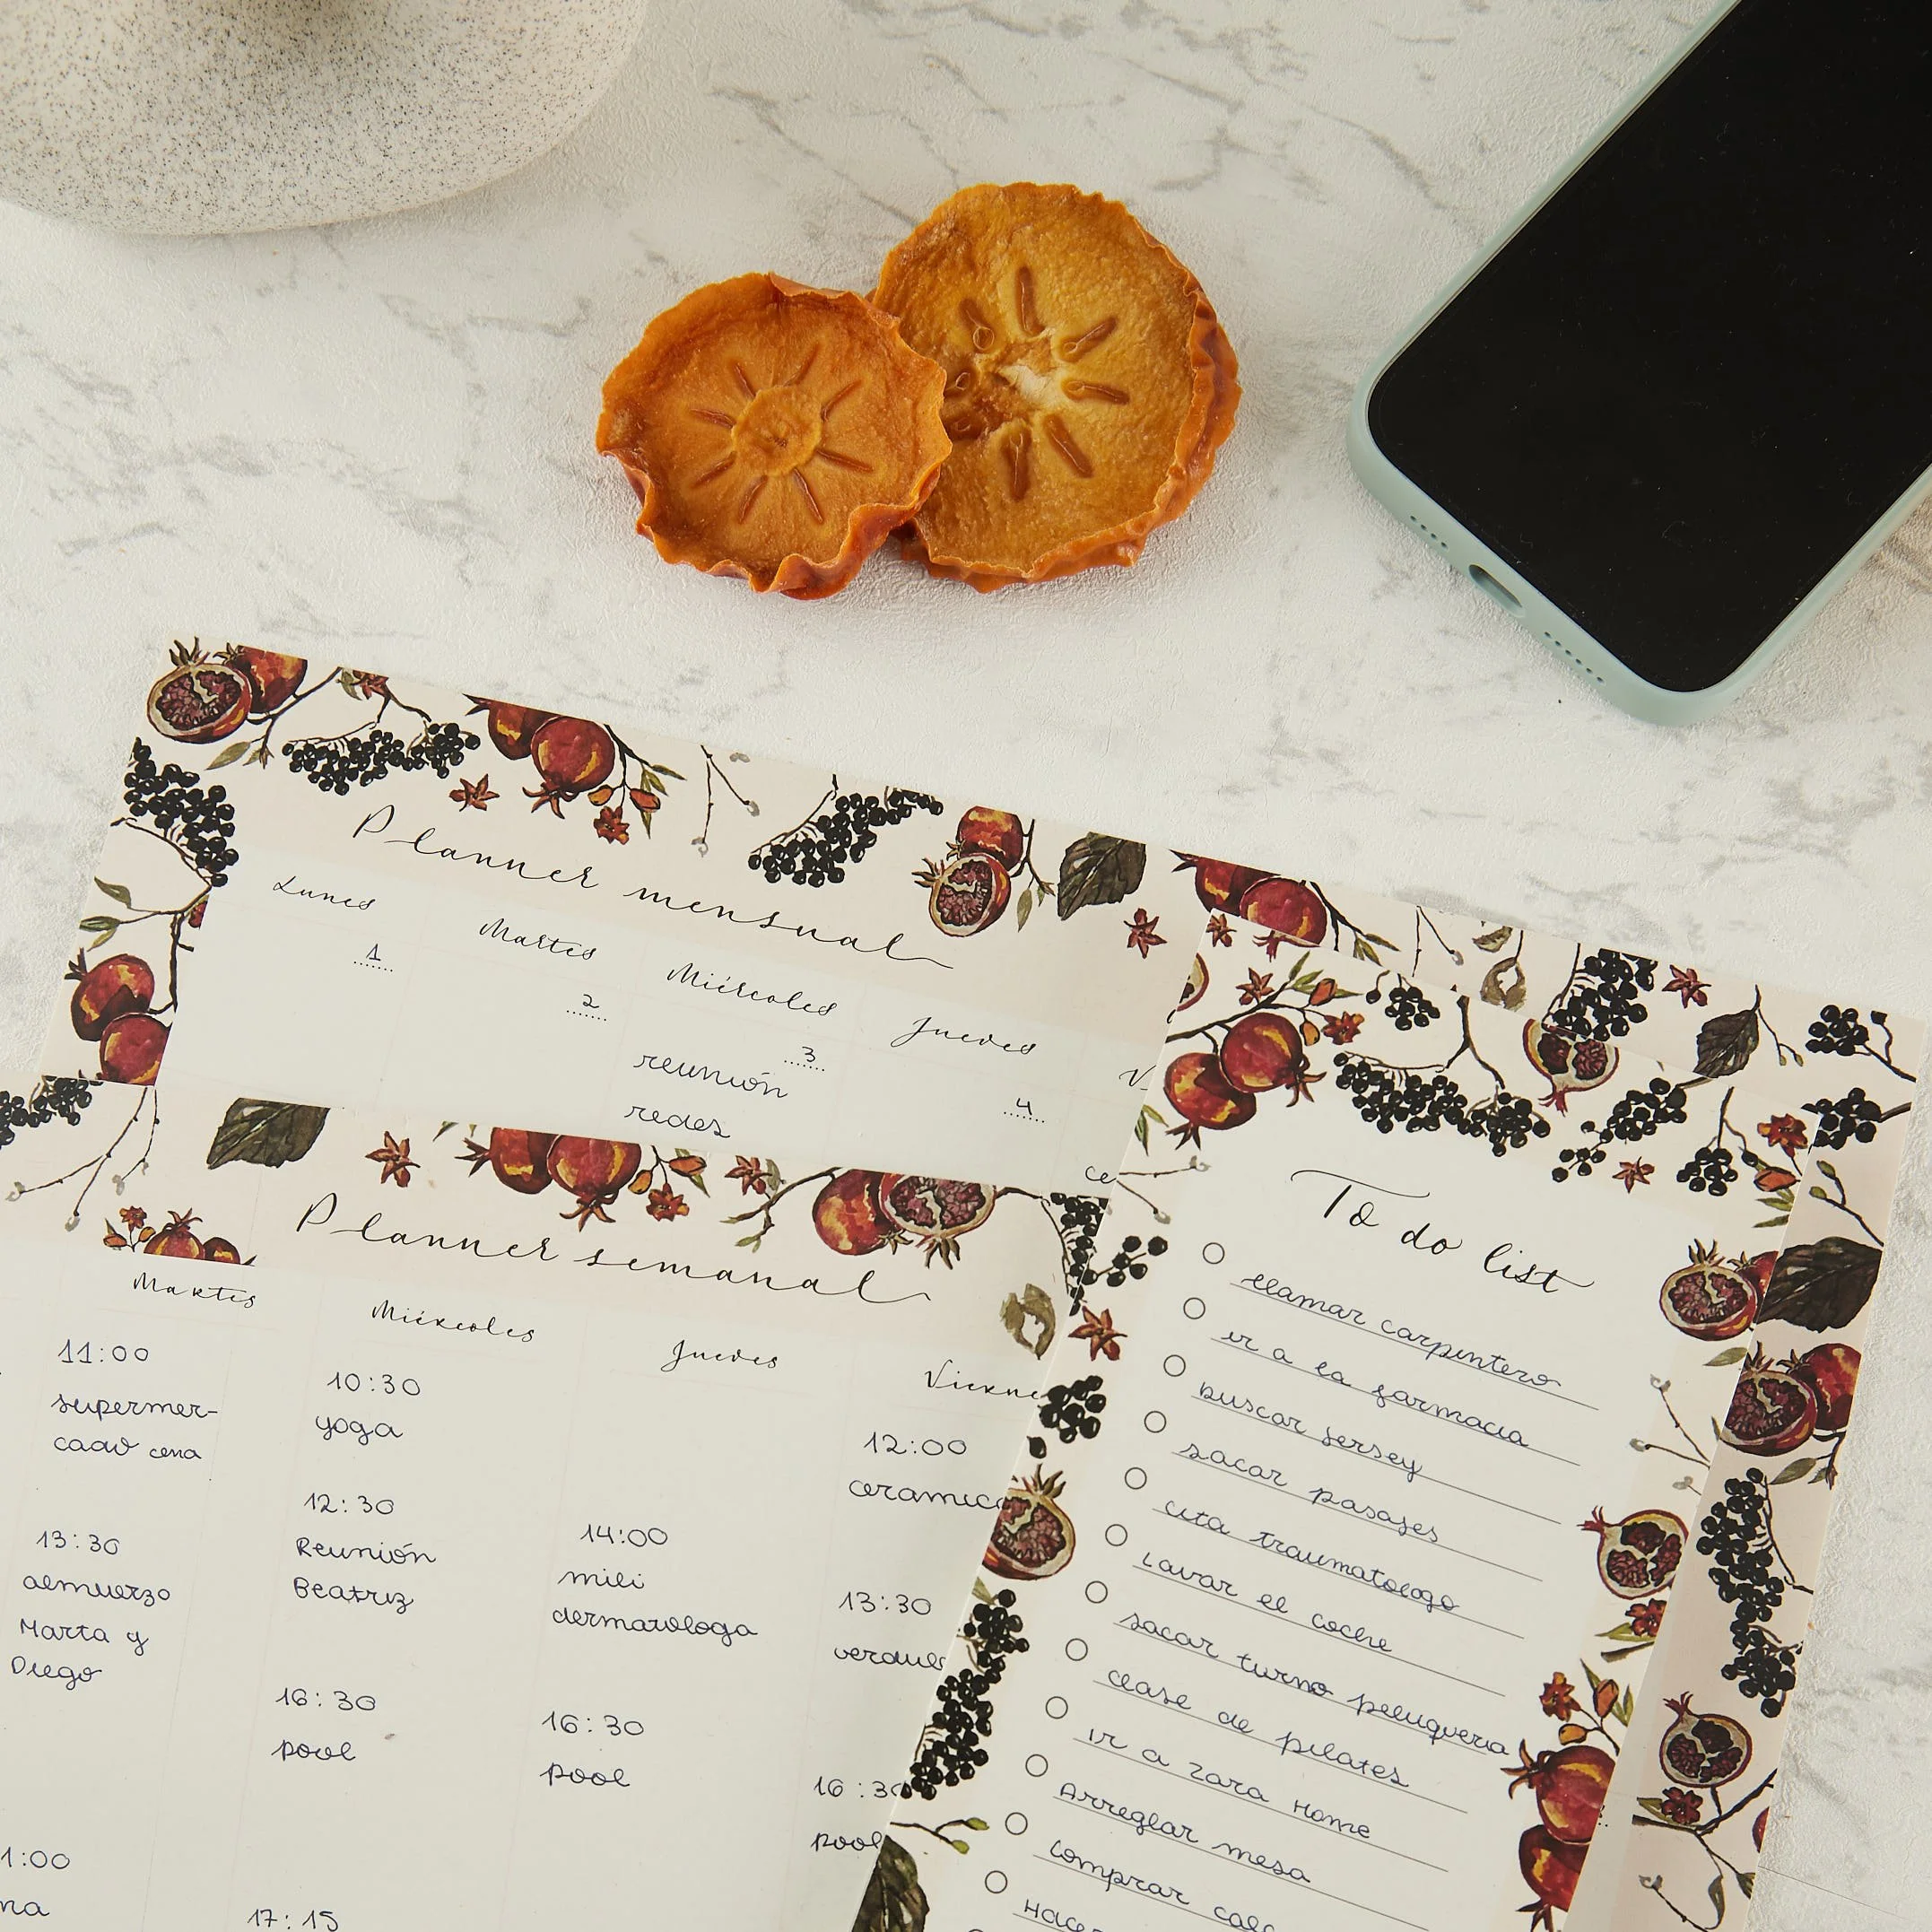 Planner mensual
Lunes
Martes
Miércoles
Jueves
1
2
3
4
reunión
redes
ce
Planner semanal
Martes
Miércoles
Jueves
Vierne
11:00
supermer-
cado cena
13:30
almuerzo
Marta y
Diego
1:00
na
10:30
yoga
12:30
Reunión
Beatriz
16:30
pool
17:15
14:00
mili
dermatologa
16:30
pool
12:00
ceramica
13:30
16:30
pool
To do list
llamar carpintero
ir a la farmacia
buscar jersey
sacar pasajes
cita traumatologo
Lavar el coche
sacar turno peluqueria
clase de pilates
ir a Zara Home
Arreglar mesa
comprar
Hacer